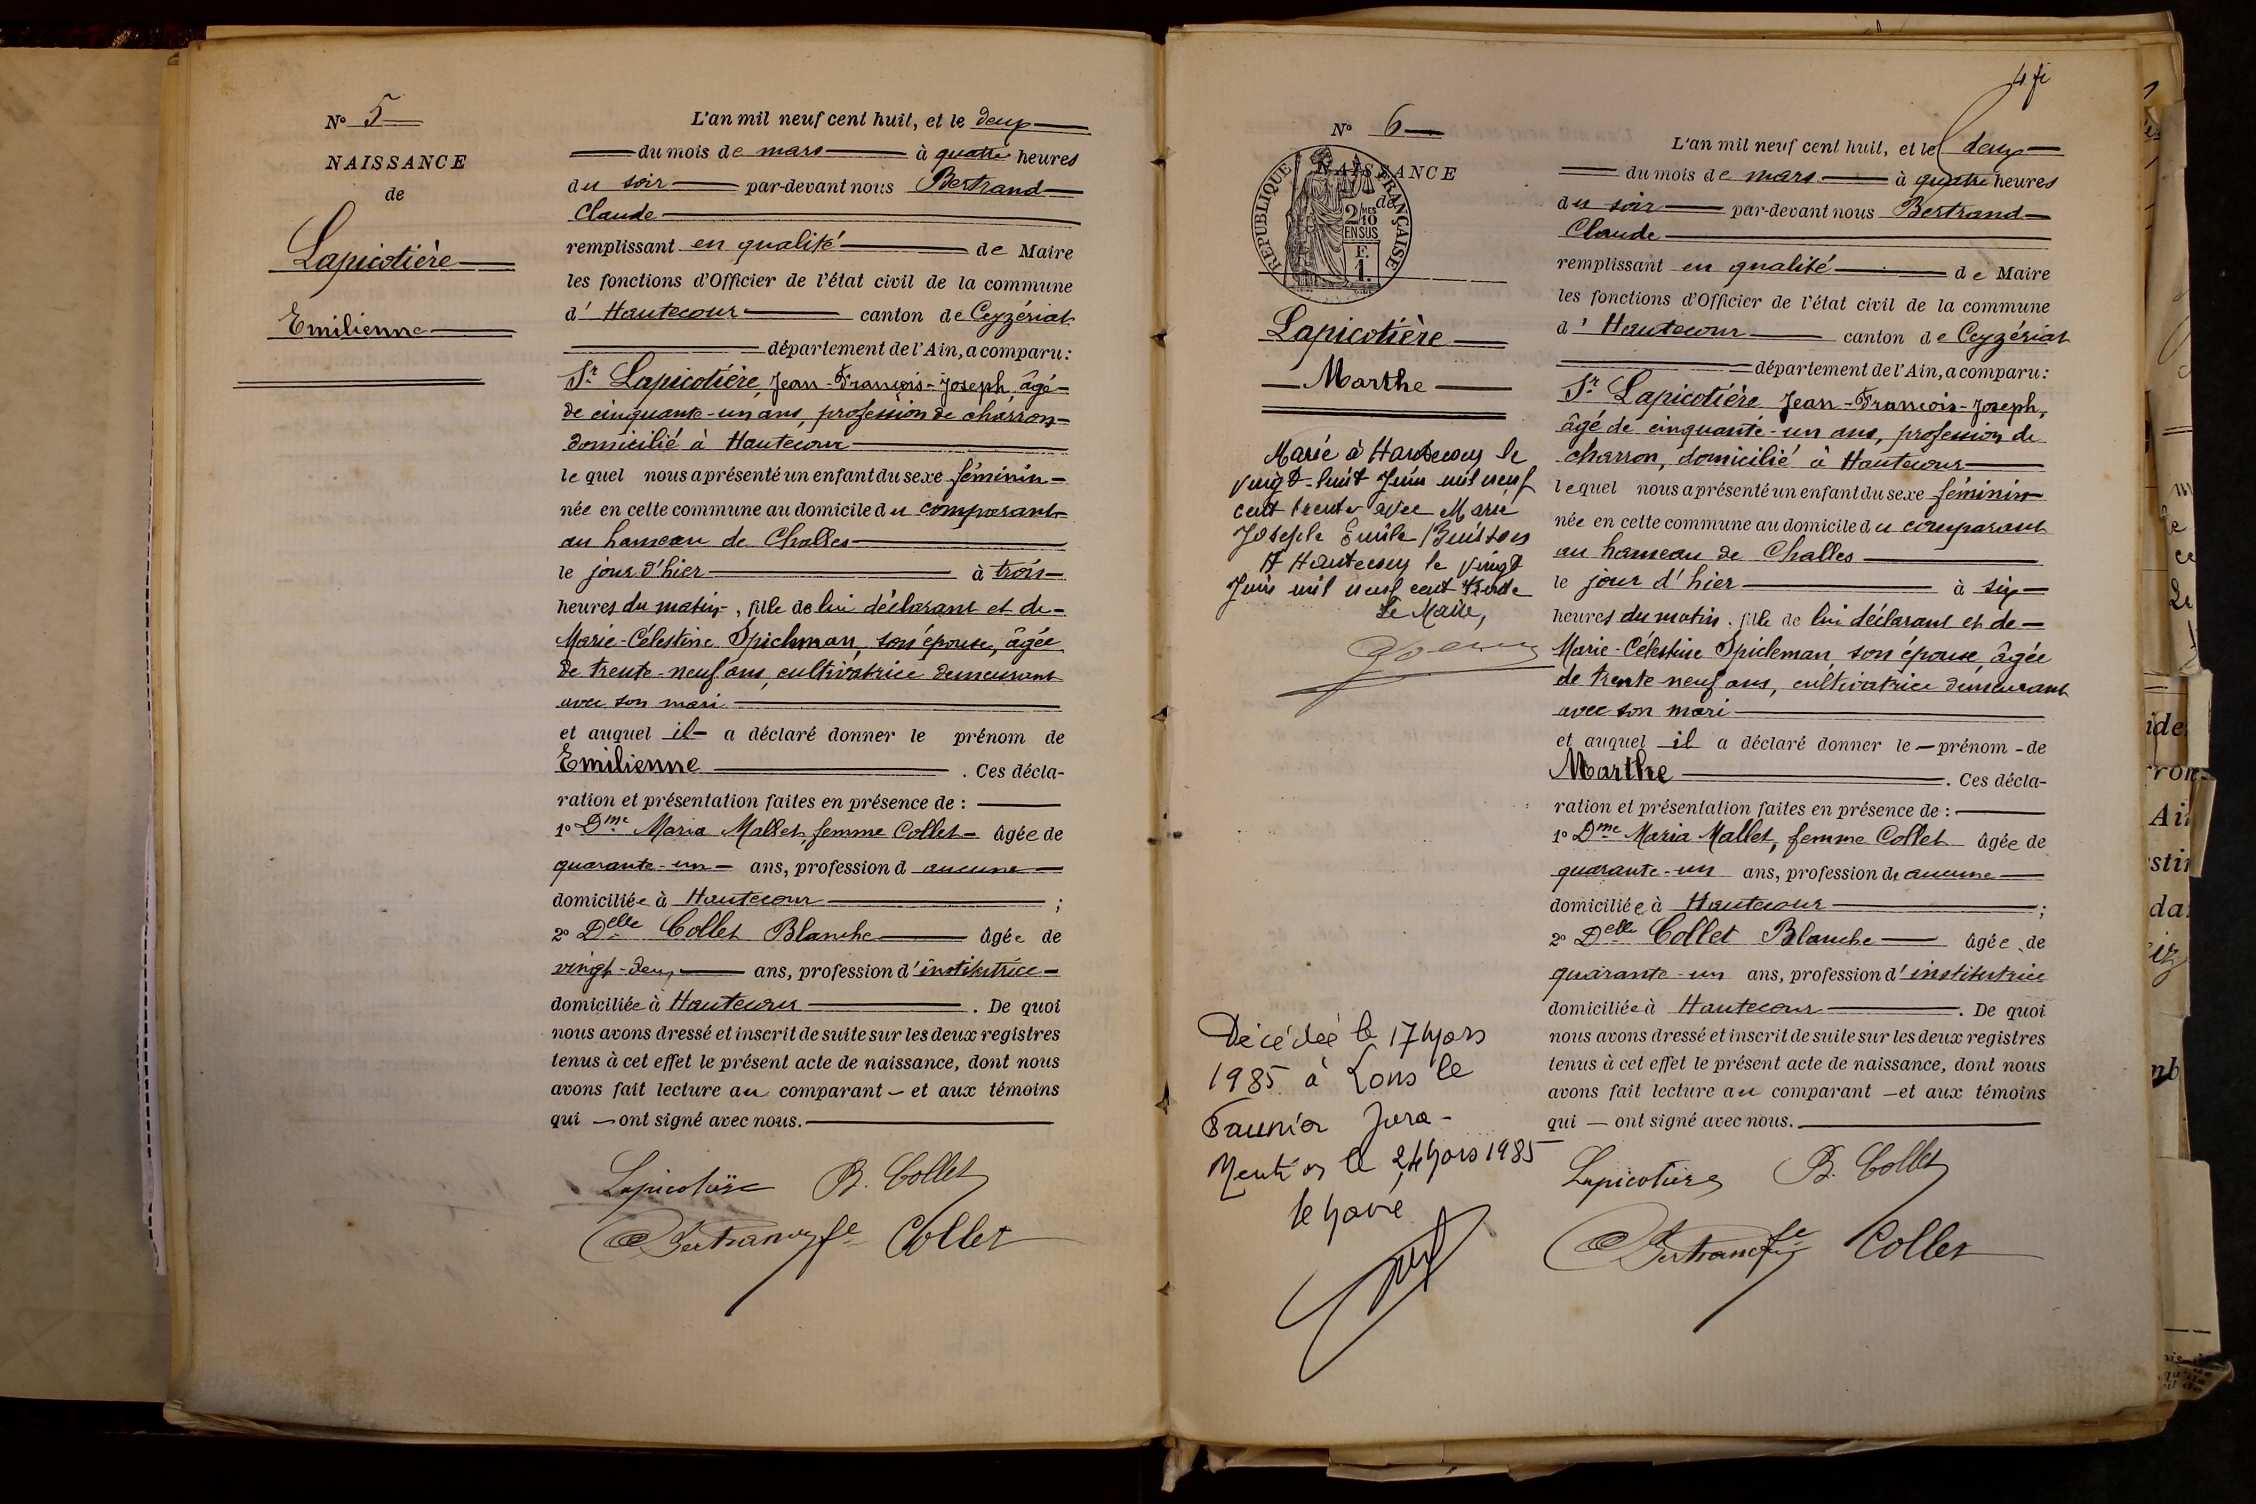 N° 5
NAISSANCE
de
Lapicotière
Emilienne
L'an mil neuf cent huit, et le deux
du mois de mars à quatre heures
du soir par-devant nous Bertrand
Claude
remplissant en qualité de Maire
les fonctions d'Officier de l'état civil de la commune
d' Hautecour canton de Ceyzériat
département de l'Ain, a comparu:
Sr Lapicotière, Jean-François-Joseph, âgé
de cinquante-un ans, profession de charron
domicilié à Hautecour
lequel nous a présenté un enfant du sexe féminin
née en cette commune au domicile du comparant
au hameau de Challes
le jour d'hier à trois
heures du matin, fille de lui déclarant et de
Marie-Célestine Spichman, son épouse, âgée
de trente-neuf ans, cultivatrice demeurant
avec son mari
et auquel il a déclaré donner le prénom de
Emilienne. Ces décla-
ration et présentation faites en présence de :
1° Dme Maria Mallet, femme Collet âgée de
quarante-un ans, profession d aucune
domiciliée à Hautecour ;
2° Delle Collet Blanche âgée de
vingt-deux ans, profession d'institutrice
domiciliée à Hautecour. De quoi
nous avons dressé et inscrit de suite sur les deux registres
tenus à cet effet le présent acte de naissance, dont nous
avons fait lecture au comparant et aux témoins
qui ont signé avec nous.
Lapicotière B. Collet
Bertrand fe Collet
N° 6
NAISSANCE
de
RÉPUBLIQUE FRANÇAISE
2/10 MES
EN SUS
F.
1.
Lapicotière
Marthe
Marié à Hautecour le
vingt-huit Juin mil neuf
cent trente avec Marie
Joseph Emile Buisson
A Hautecour le vingt
Juin mil neuf cent trente
Le Maire,
Décédée le 17 Mars
1985 à Lons le
Saunier Jura -
Mention le 24 Mars 1985
le Maire
L'an mil neuf cent huit, et le deux
du mois de mars à quatre heures
du soir par-devant nous Bertrand
Claude
remplissant en qualité de Maire
les fonctions d'Officier de l'état civil de la commune
d' Hautecour canton de Ceyzériat
département de l'Ain, a comparu:
Sr Lapicotière, Jean-François-Joseph,
âgé de cinquante-un ans, profession de
charron, domicilié à Hautecour
lequel nous a présenté un enfant du sexe féminin
née en cette commune au domicile du comparant
au hameau de Challes
le jour d'hier à six
heures du matin, fille de lui déclarant et de
Marie-Célestine Spicleman, son épouse âgée
de trente neuf ans, cultivatrice demeurant
avec son mari
et auquel il a déclaré donner le prénom de
Marthe. Ces décla-
ration et présentation faites en présence de :
1° Dme Maria Mallet, femme Collet âgée de
quarante-un ans, profession de aucune
domiciliée à Hautecour ;
2° Delle Collet Blanche âgée de
quarante-un ans, profession d'institutrice
domiciliée à Hautecour. De quoi
nous avons dressé et inscrit de suite sur les deux registres
tenus à cet effet le présent acte de naissance, dont nous
avons fait lecture au comparant et aux témoins
qui ont signé avec nous.
Lapicotière B. Collet
Bertrand fe Collet